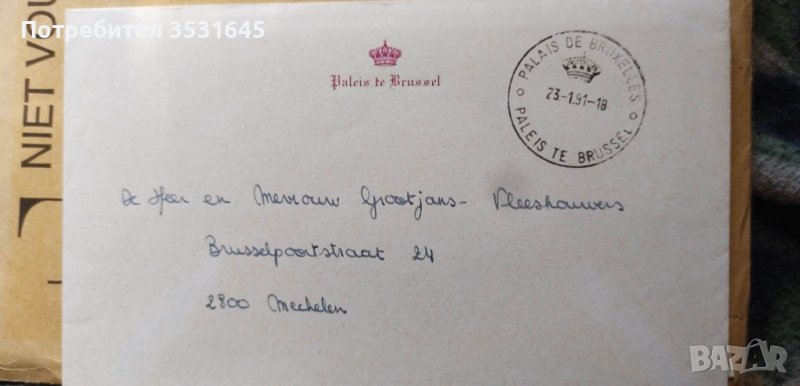 Потребител 3531645
NIET VOU
Paleis te Brussel
PALAIS DE BRUXELLES
23-1.91-18
PALEIS TE BRUSSEL
De Heer en Mevrouw Grootjans- Vleeshouwers
Brusselpoortstraat 24
2800 Mechelen
BAZAR